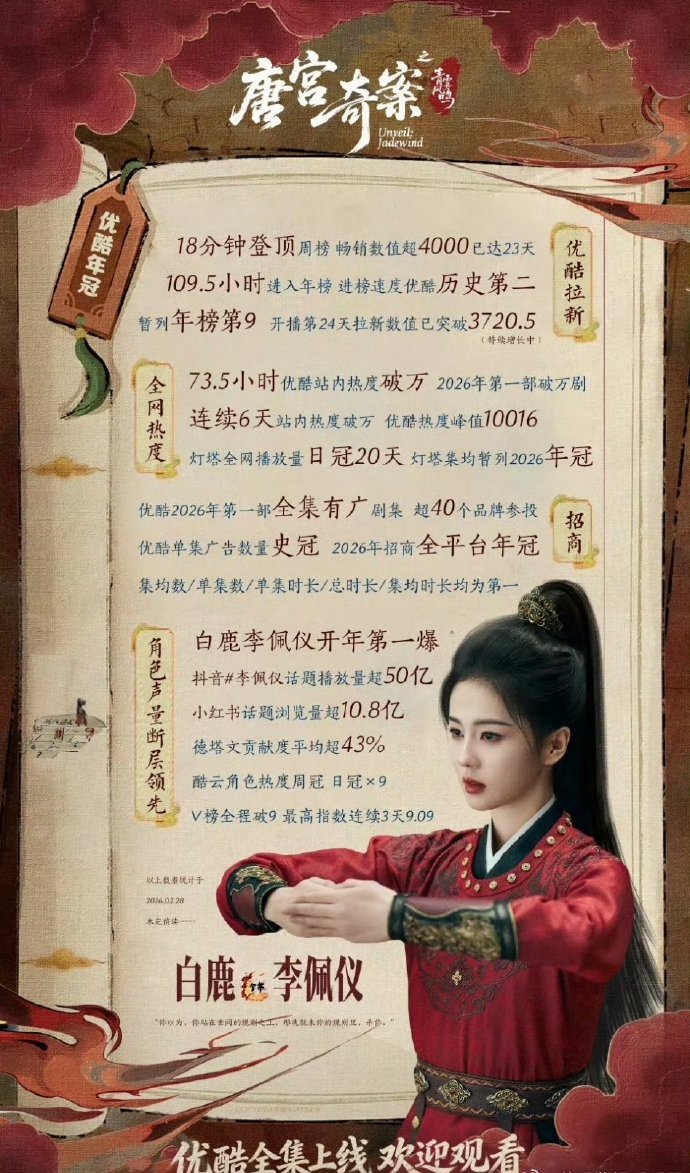 唐宫奇案
之
青雾风鸣
Unveil:
Jadewind
优酷年冠
优酷拉新
18分钟登顶周榜 畅销数值超4000已达23天
109.5小时进入年榜 进榜速度优酷历史第二
暂列年榜第9 开播第24天拉新数值已突破3720.5
(持续增长中)
全网热度
73.5小时优酷站内热度破万 2026年第一部破万剧
连续6天站内热度破万 优酷热度峰值10016
灯塔全网播放量日冠20天 灯塔集均暂列2026年冠
招商
优酷2026年第一部全集有广剧集 超40个品牌参投
优酷单集广告数量史冠 2026年招商全平台年冠
集均数/单集数/单集时长/总时长/集均时长均为第一
角色声量断层领先
白鹿李佩仪开年第一爆
抖音#李佩仪话题播放量超50亿
小红书话题浏览量超10.8亿
德塔文贡献度平均超43%
酷云角色热度周冠 日冠×9
V榜全程破9 最高指数连续3天9.09
以上数据统计于
2026.02.28
未完待续……
白鹿 饰 李佩仪
"你以为，你站在世间的规则之上，那我就来你的规则里，杀你。"
优酷全集上线 欢迎观看